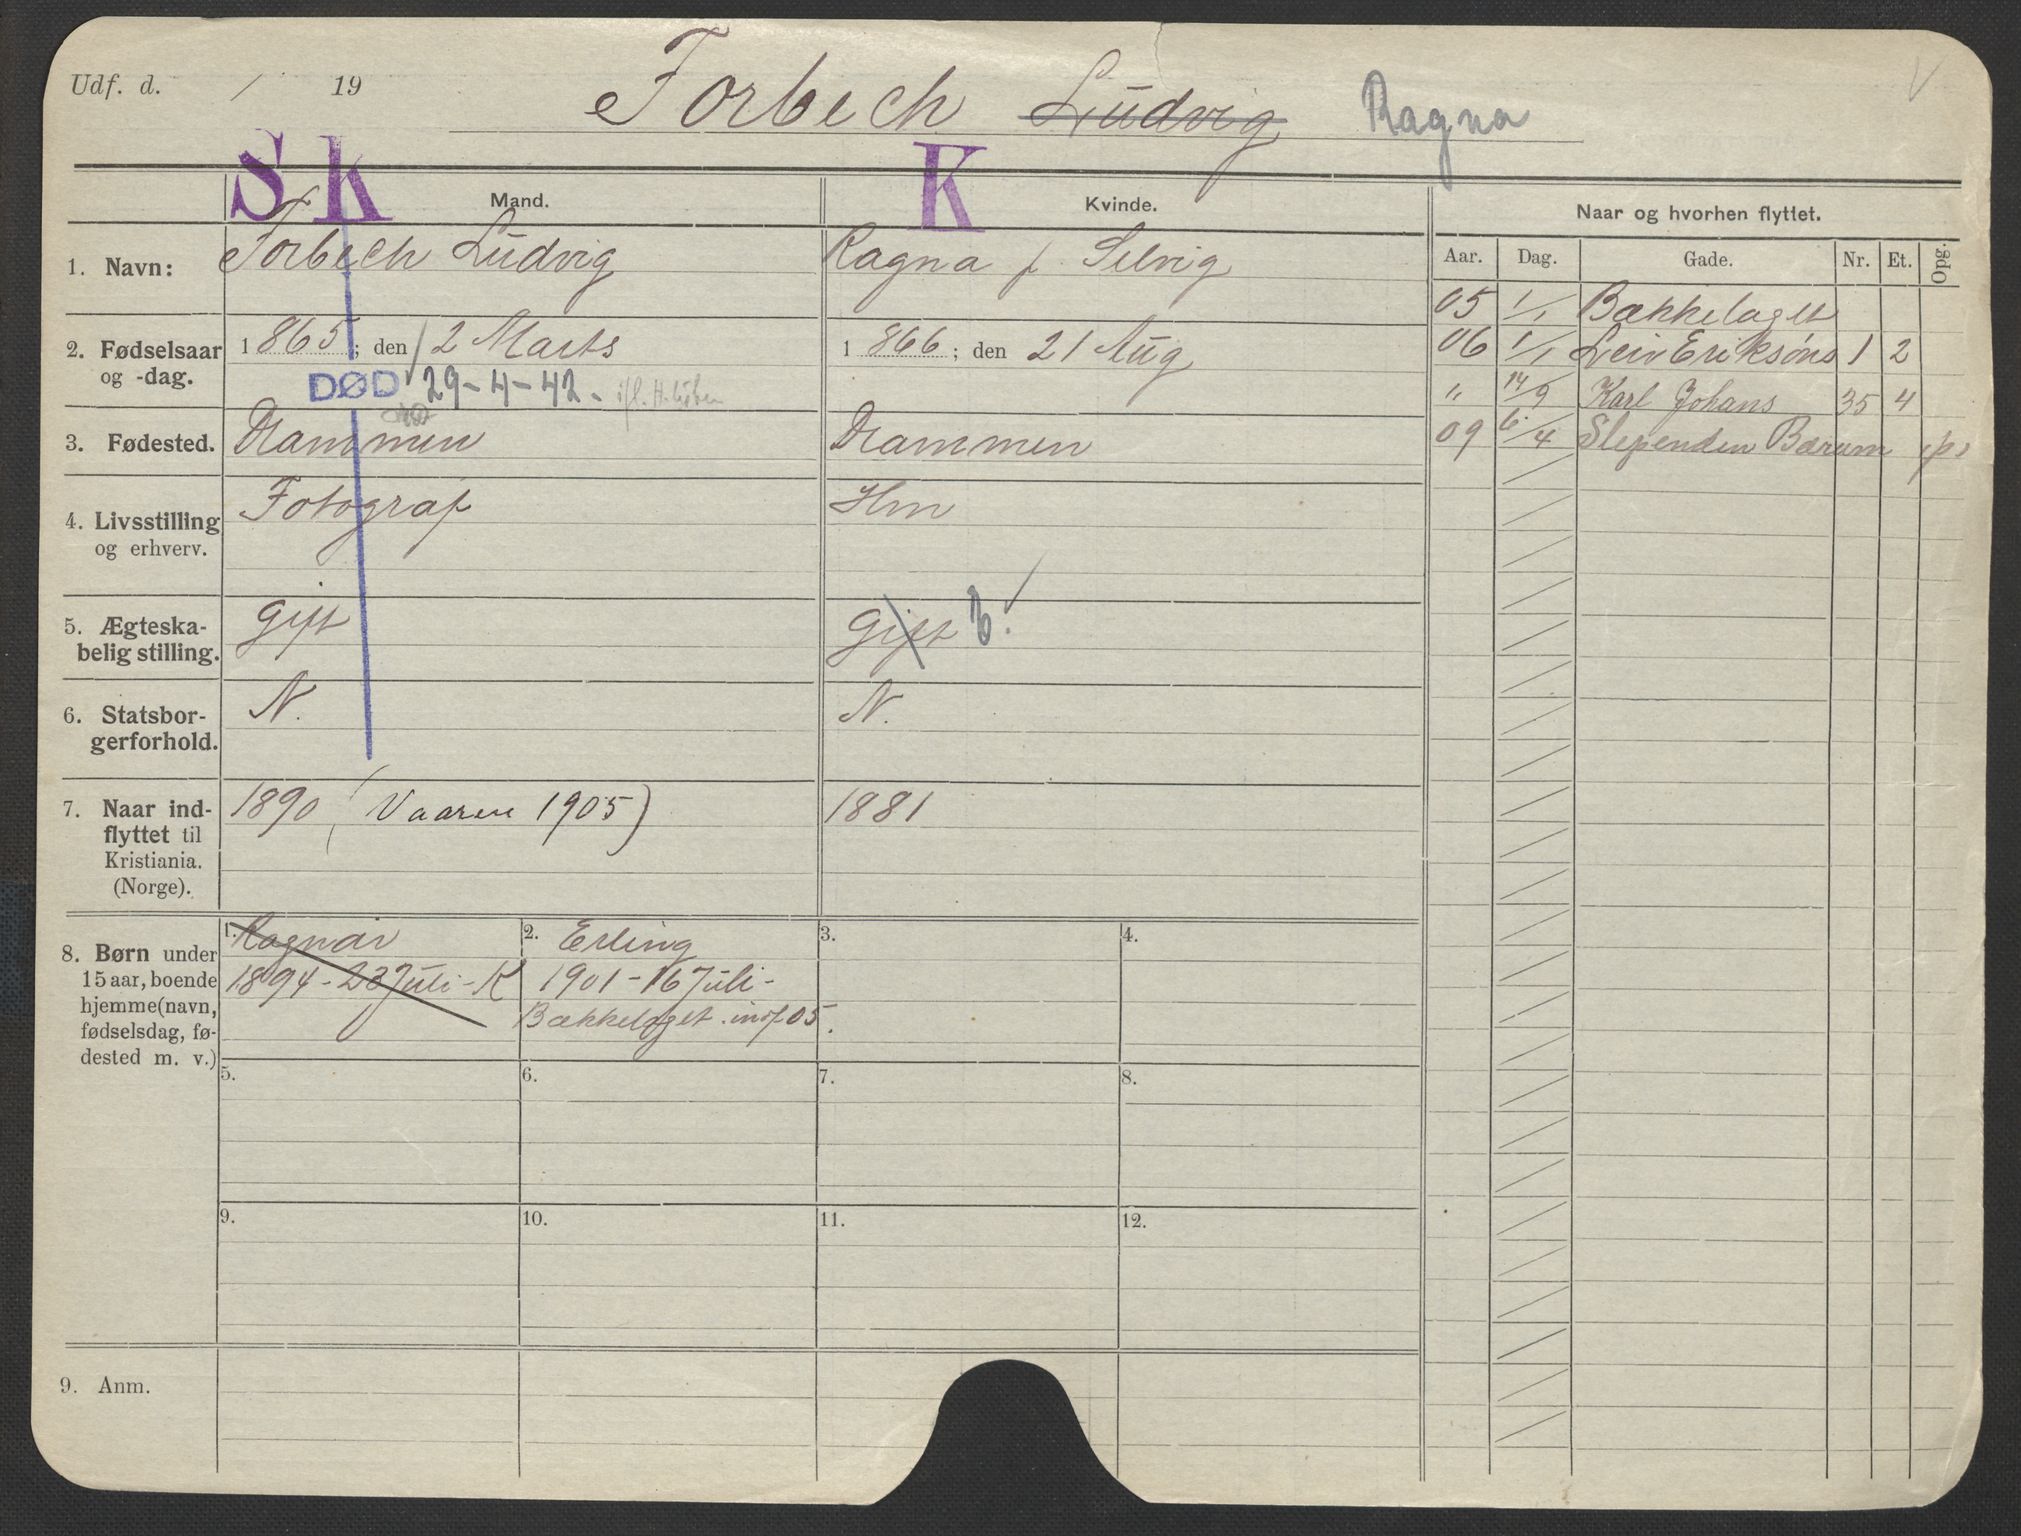 Udf. d. / 19
Forbech Ludvig Ragna
V
S K
K
Mand.
Kvinde.
Naar og hvorhen flyttet.
Aar. Dag. Gade. Nr. Et. Opg.
1. Navn: Forbech Ludvig
Ragna f. Selvig
05 1/1 Bækkelaget
2. Fødselsaar og -dag.
1865; den 12 Marts
1866; den 21 Aug
06 1/1 Leiv Eriksøns 1 2
DØD 29-4-42.
" 14/9 Karl Johans 35 4
3. Fødested. Drammen
Drammen
09 6/4 Slependen Bærum
4. Livsstilling
og erhverv.
Fotograf
Hm
5. Ægteska-
belig stilling.
Gift
Gift
6. Statsbor-
gerforhold.
N.
N.
7. Naar ind-
flyttet til
Kristiania.
(Norge).
1890 (Vaaren 1905)
1881
8. Børn under
15 aar, boende
hjemme (navn,
fødselsdag, fø-
dested m. v.)
1. Ragnar
1894 - 23 Juli - K
2. Erling
1901 - 16 Juli -
Bækkelaget. indf 05.
3.
4.
5.
6.
7.
8.
9.
10.
11.
12.
9. Anm.